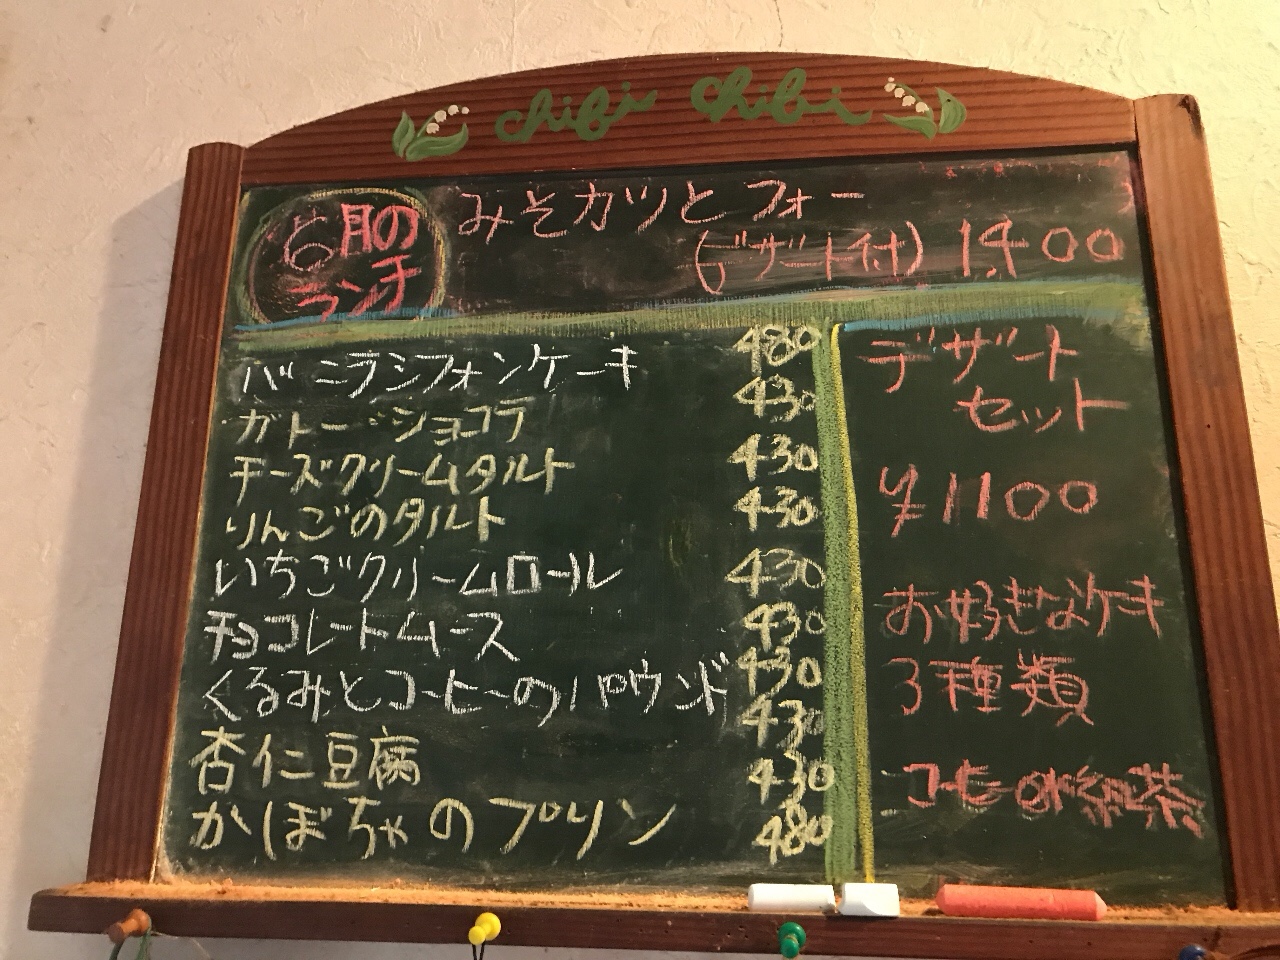 chibi chibi
6月の
ランチ
みそカツとフォー
(デザート付) 1,400
バニラシフォンケーキ
ガトーショコラ
チーズクリームタルト
りんごのタルト
いちごクリームロール
チョコレートムース
くるみとコーヒーのパウンド
杏仁豆腐
かぼちゃのプリン
480
430
430
430
430
430
430
430
430
480
デザート
セット
¥1100
お好きなケーキ
3種類
コーヒーor紅茶